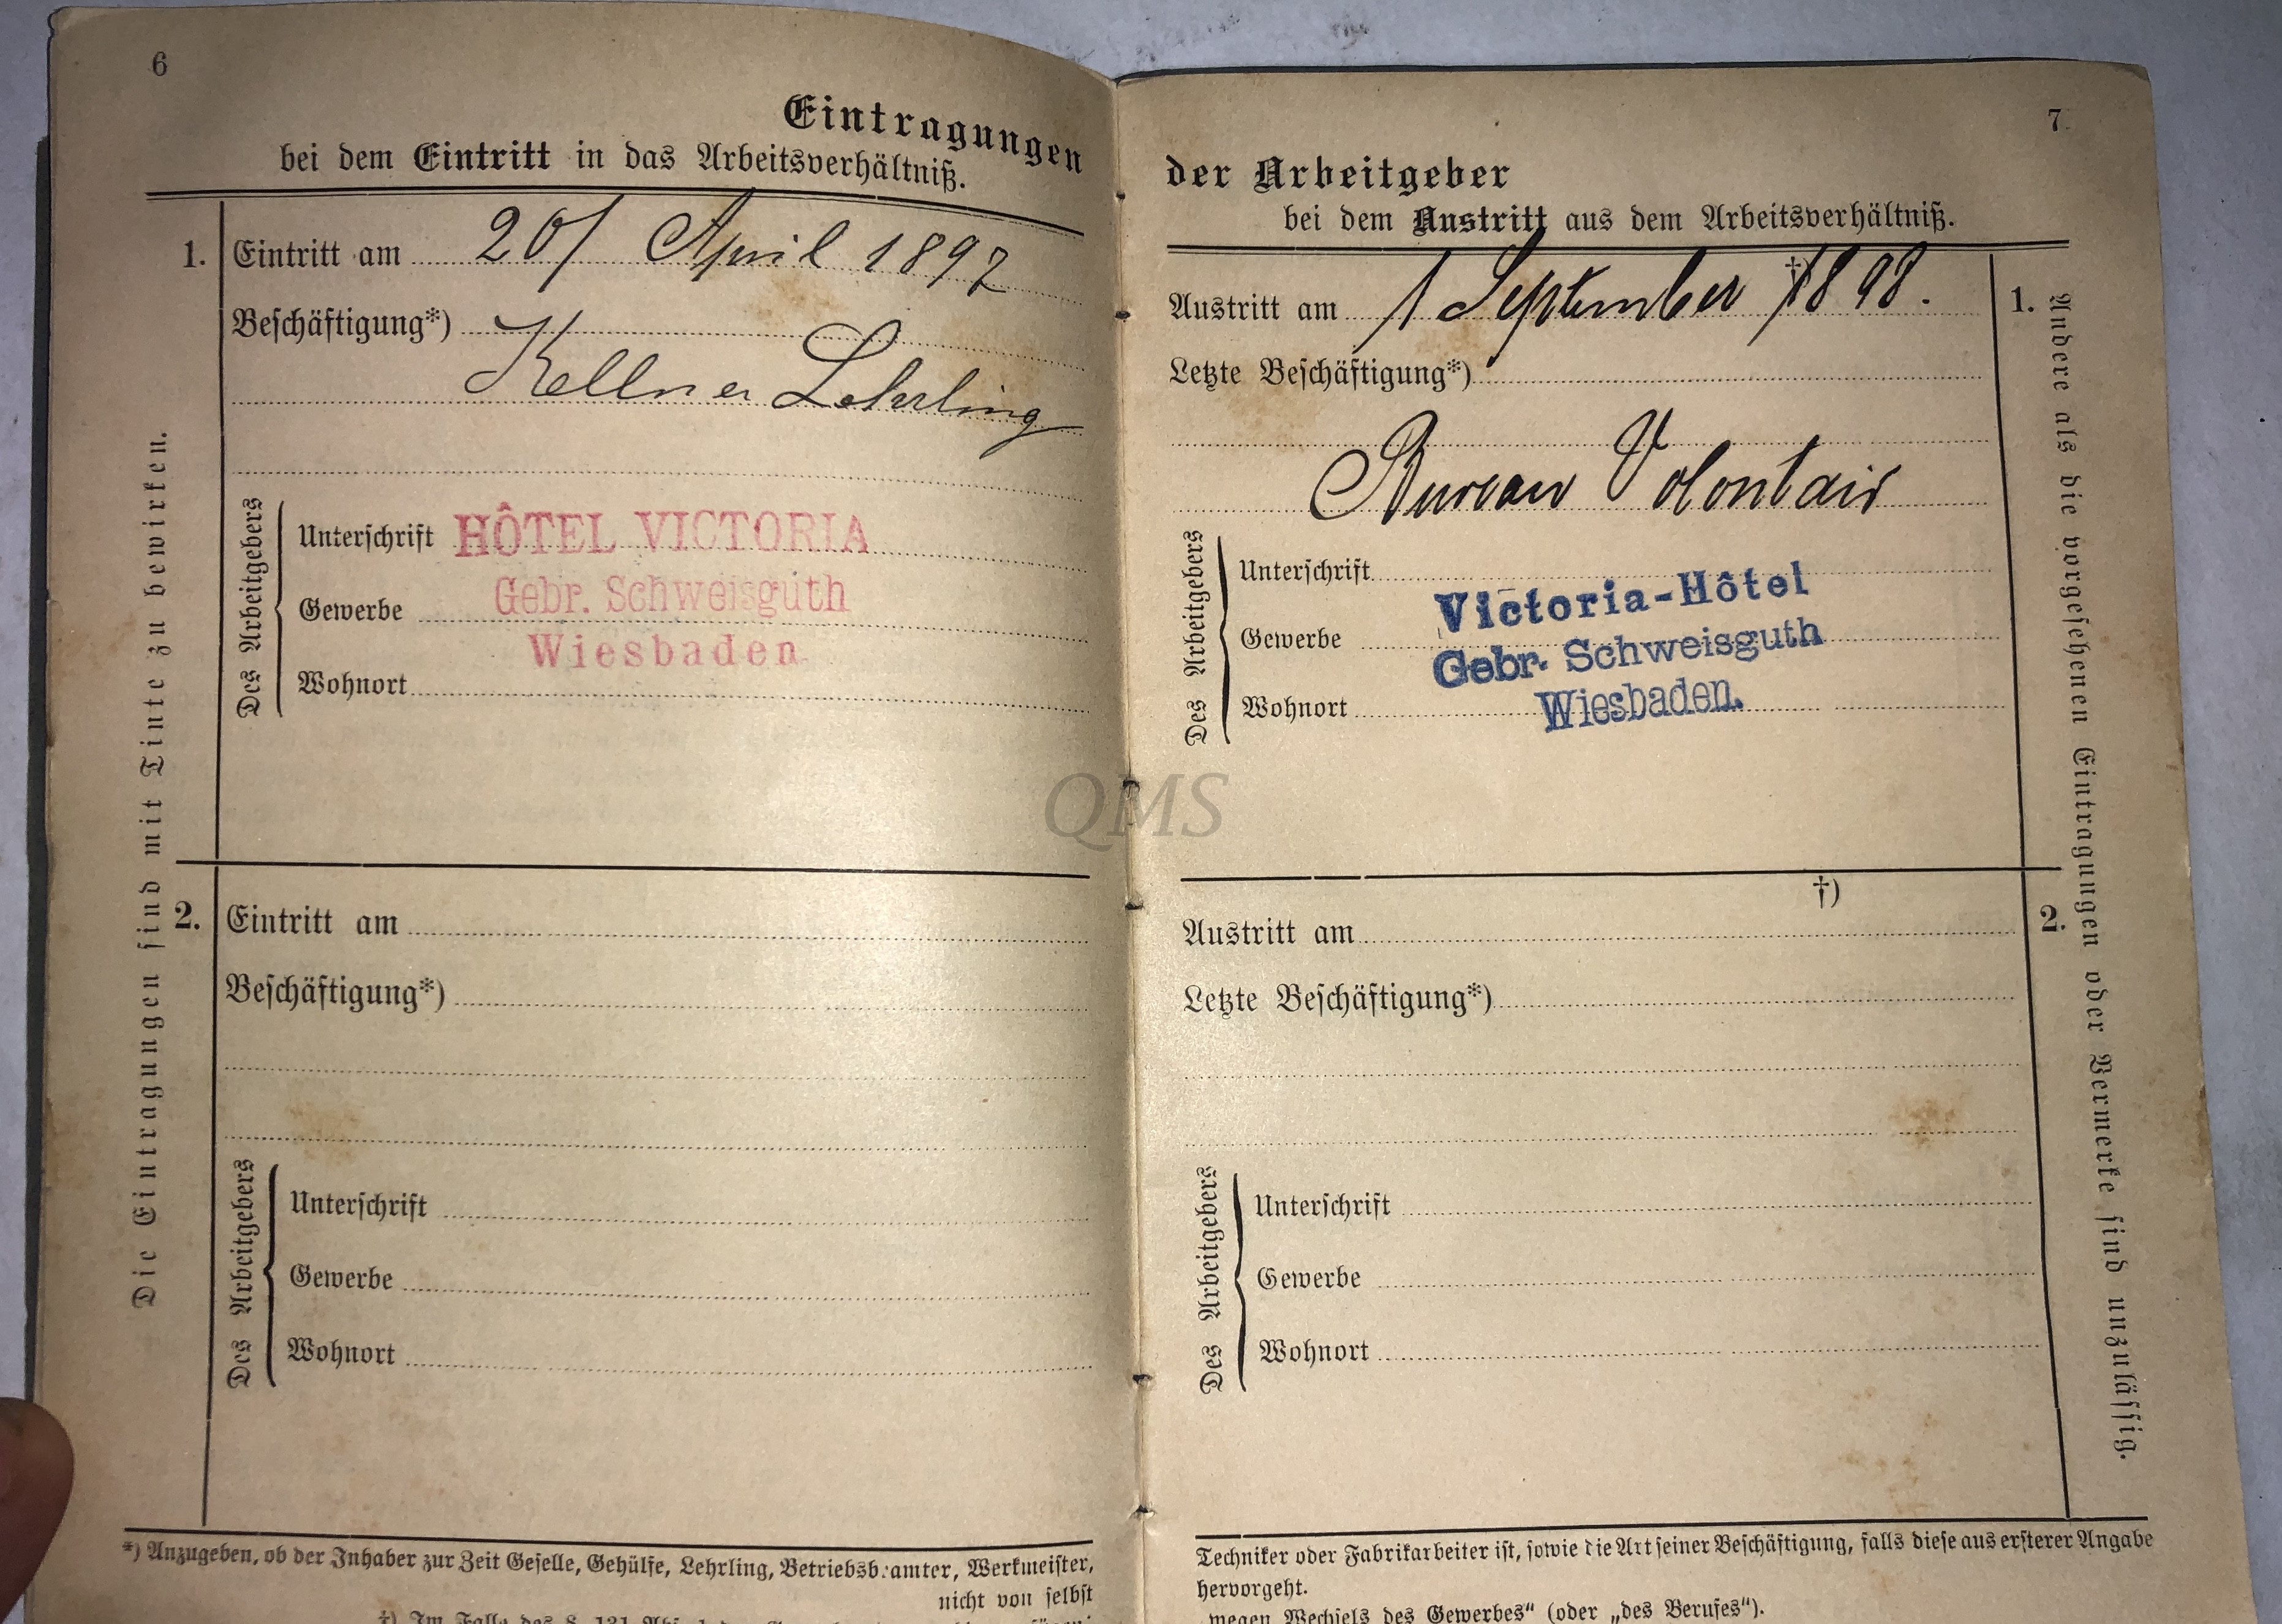 6
Eintragungen
bei dem Eintritt in das Arbeitsverhältniß.
1. Eintritt am 20/ April 1897
Beschäftigung*)
Kellner Lehrling
Des Arbeitgebers
Unterschrift HÔTEL VICTORIA
Gewerbe Gebr. Schweisguth
Wiesbaden
Wohnort
2. Eintritt am
Beschäftigung*)
Des Arbeitgebers
Unterschrift
Gewerbe
Wohnort
Die Eintragungen sind mit Tinte zu bewirken.
*) Anzugeben, ob der Inhaber zur Zeit Geselle, Gehülfe, Lehrling, Betriebsbeamter, Werkmeister,
nicht von selbst
†) Im Falle des § 131
7
der Arbeitgeber
bei dem Austritt aus dem Arbeitsverhältniß.
†)
Austritt am 1 September 1898. 1.
Letzte Beschäftigung*)
Bureau Volontair
Des Arbeitgebers
Unterschrift Victoria-Hôtel
Gewerbe Gebr. Schweisguth
Wohnort Wiesbaden.
†)
Austritt am 2.
Letzte Beschäftigung*)
Des Arbeitgebers
Unterschrift
Gewerbe
Wohnort
Andere als die vorgesehenen Eintragungen oder Vermerke sind unzulässig.
Techniker oder Fabrikarbeiter ist, sowie die Art seiner Beschäftigung, falls diese aus ersterer Angabe
hervorgeht.
wegen Wechsels des Gewerbes“ (oder „des Berufes“).
QMS